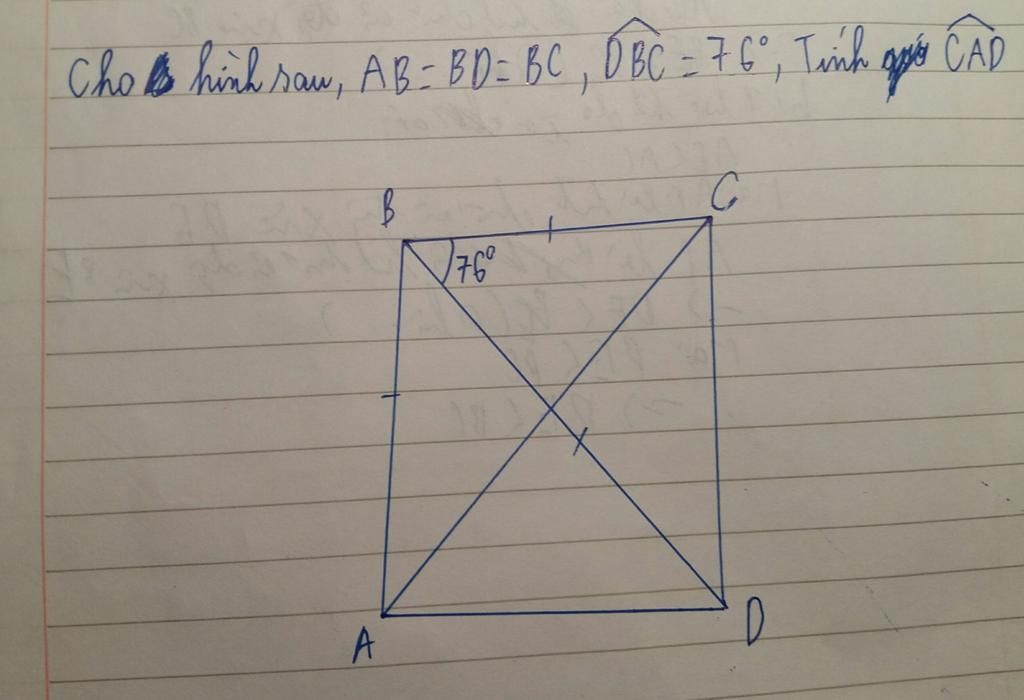 Cho hình sau, AB = BD = BC, DBC = 76°, Tính CAD
B
C
76°
A
D